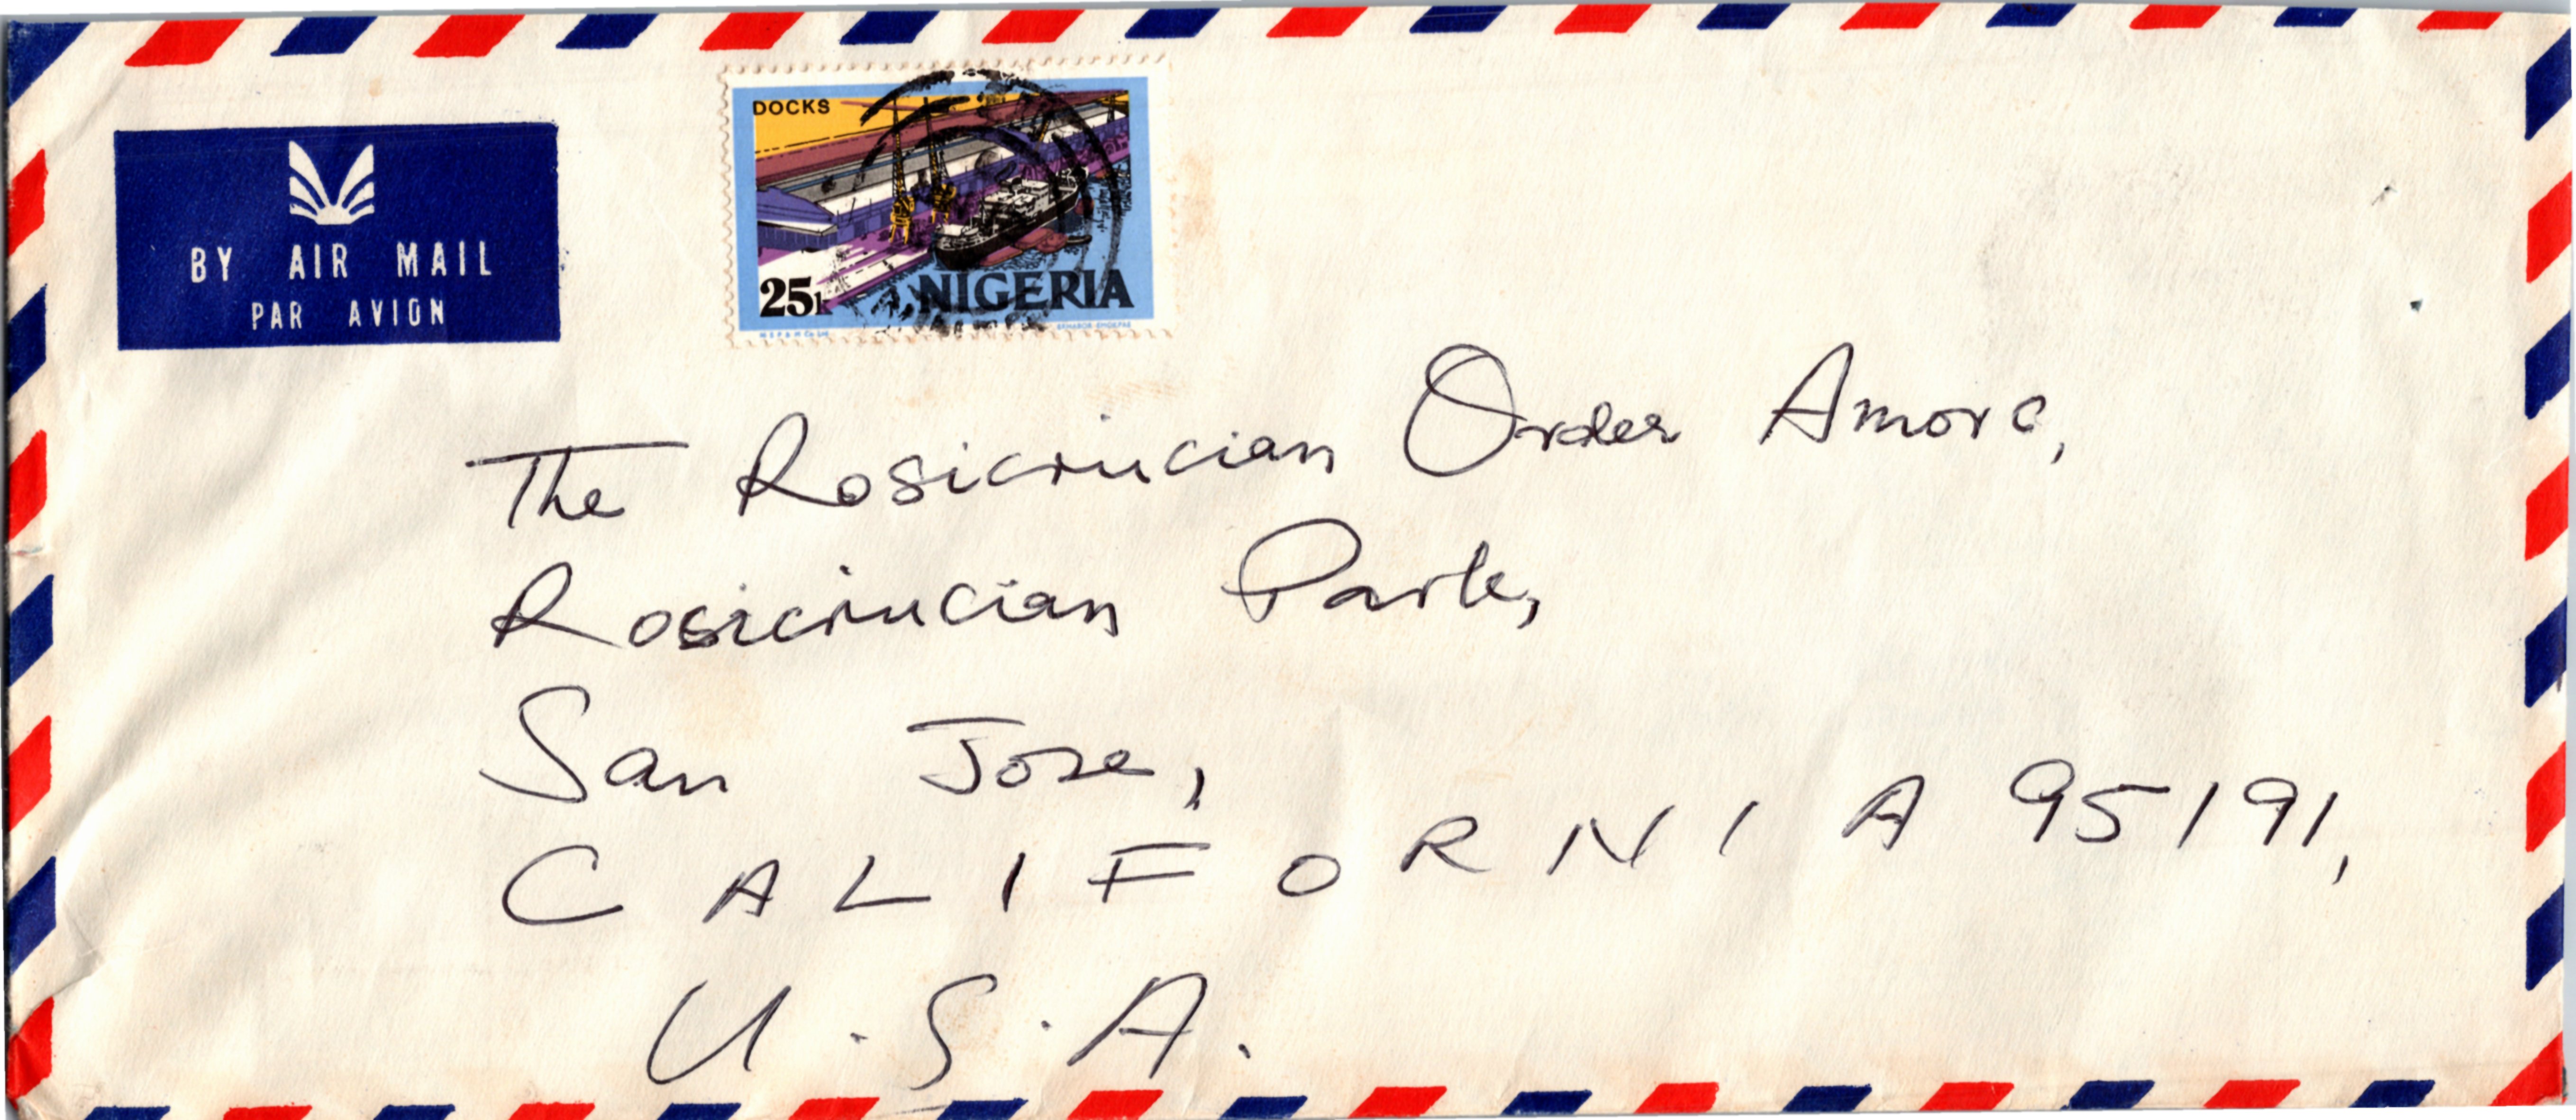 BY AIR MAIL
PAR AVION
DOCKS
25k
NIGERIA
The Rosicrucian Order Amorc,
Rosicrucian Park,
San Jose,
CALIFORNIA 95191,
U.S.A.